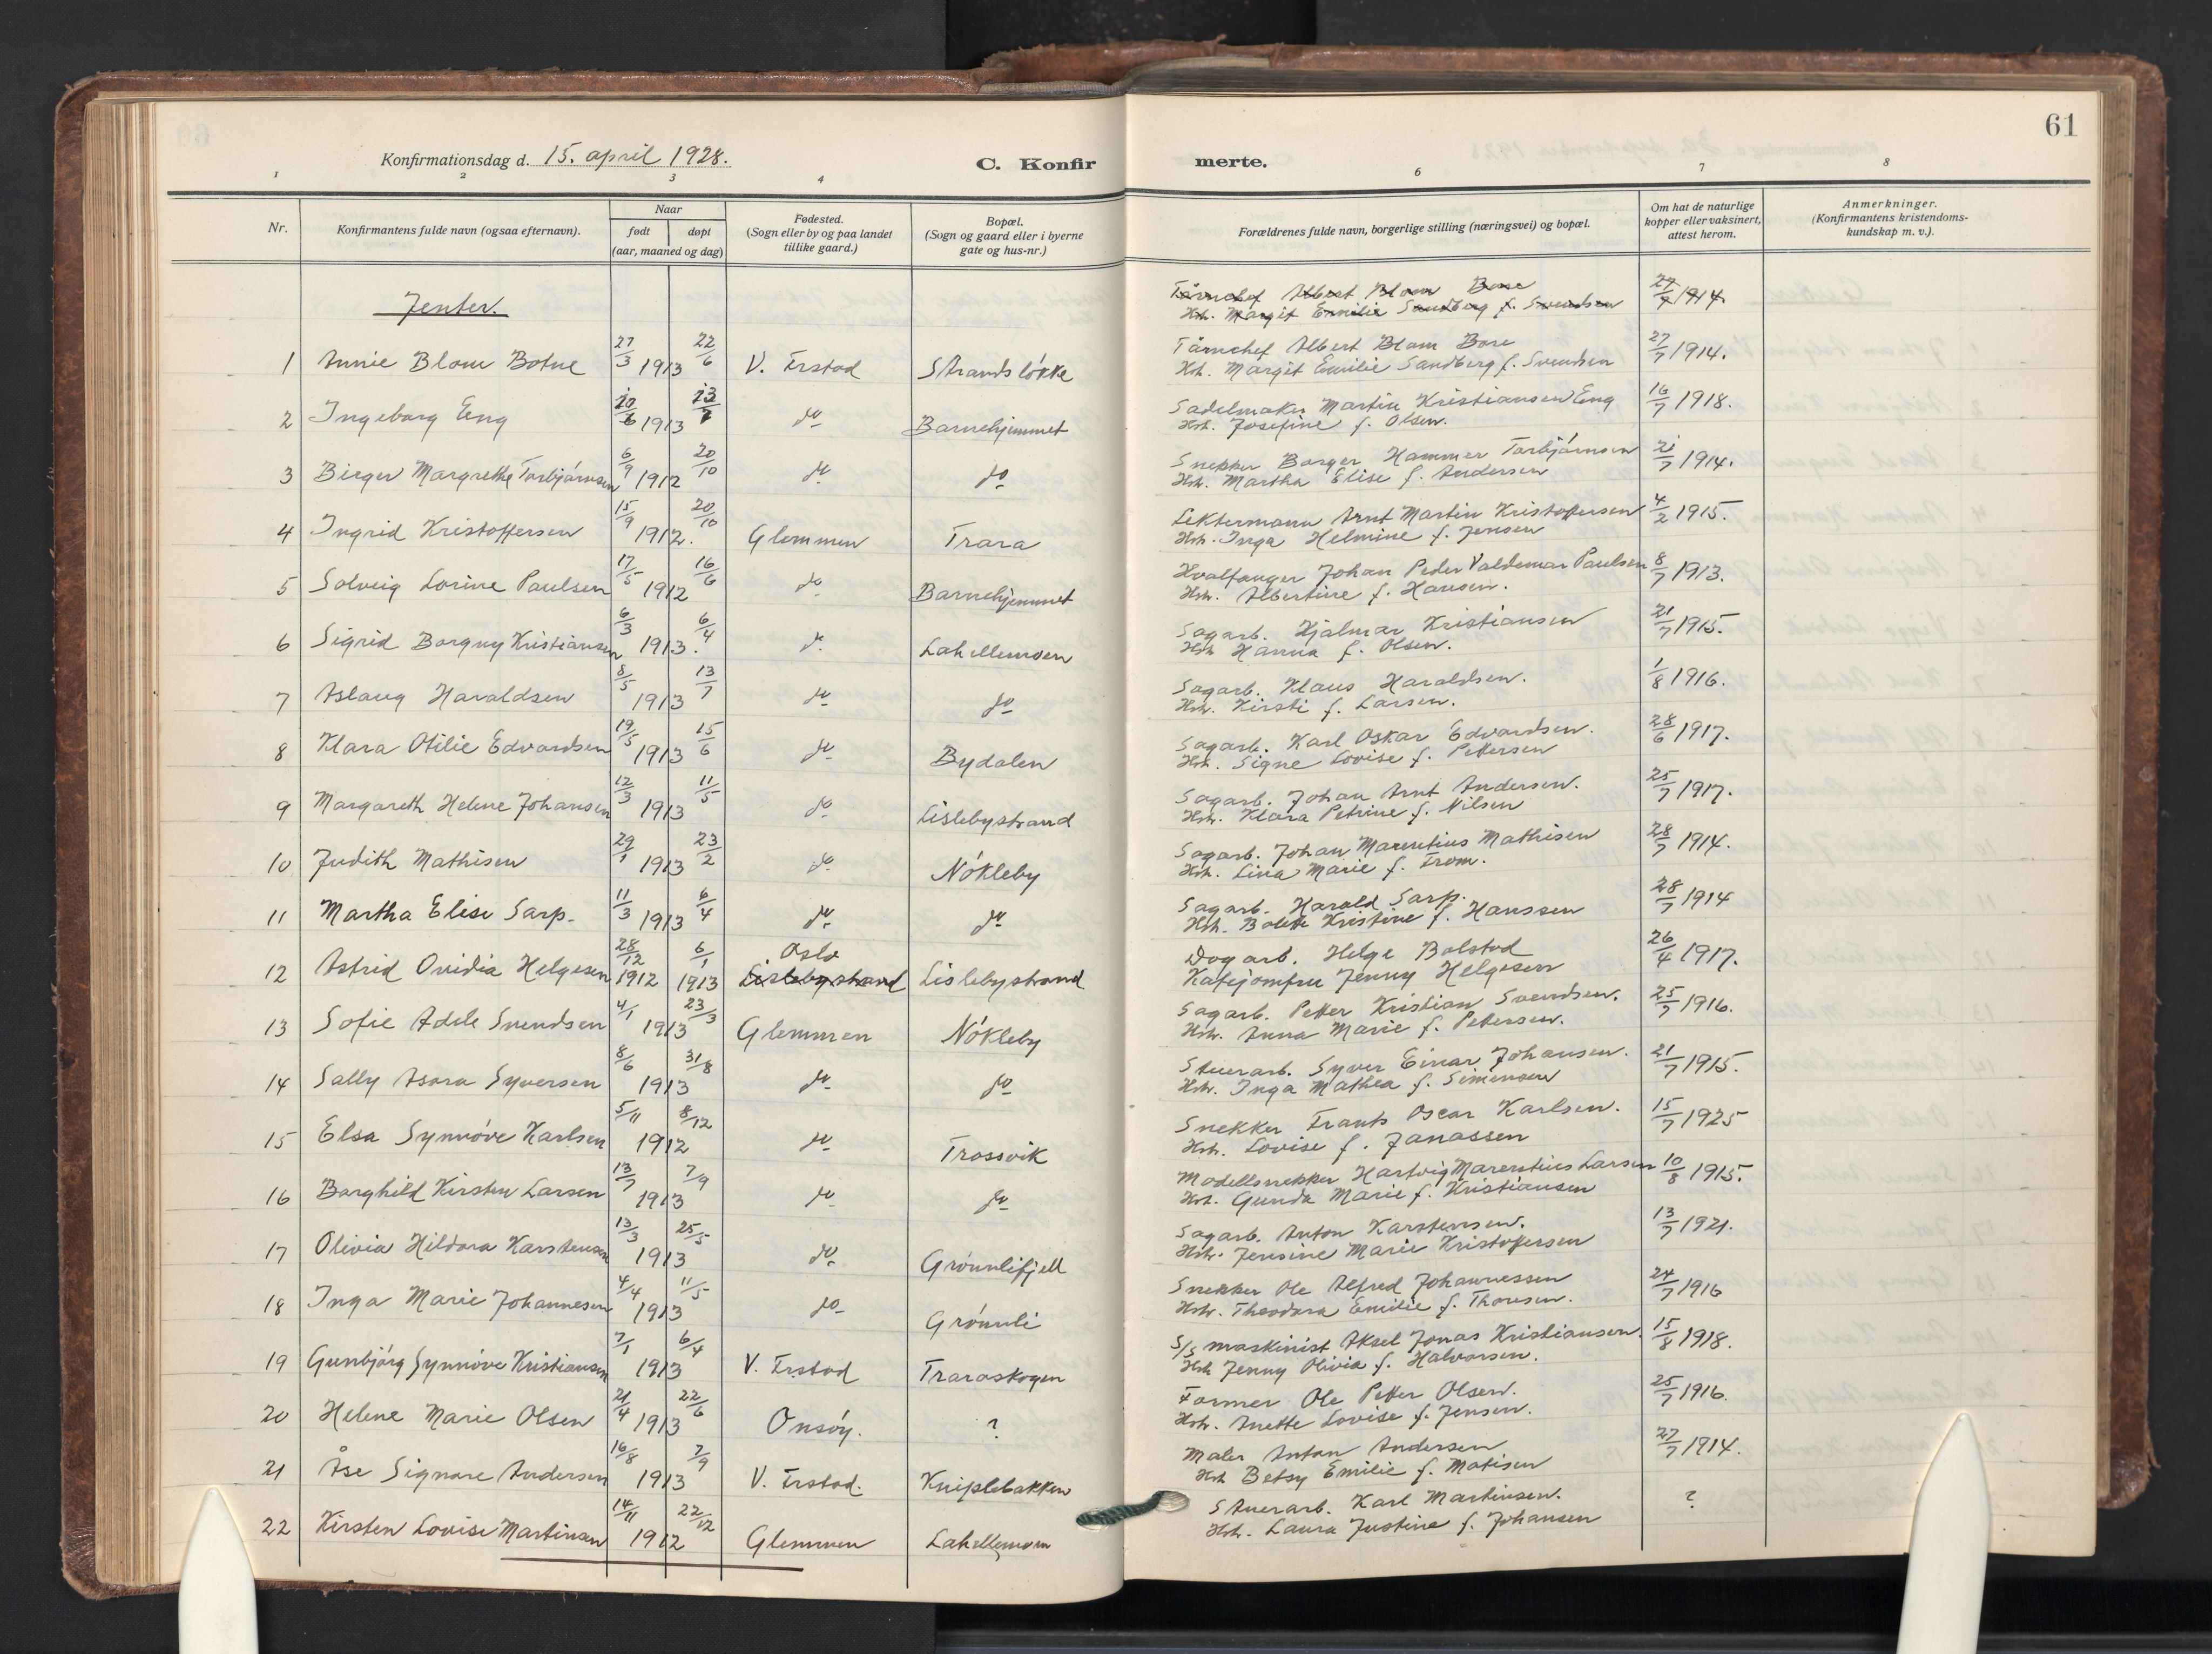 61
Konfirmationsdag d. 15. april 1928.
C. Konfir
merte.
1 2 3 4 6 7 8
Nr.
Konfirmantens fulde navn (ogsaa efternavn).
Naar
født
døpt
(aar, maaned og dag)
Fødested.
(Sogn eller by og paa landet
tillike gaard.)
Bopæl.
(Sogn og gaard eller i byerne
gate og hus-nr.)
Forældrenes fulde navn, borgerlige stilling (næringsvei) og bopæl.
Om hat de naturlige
kopper eller vaksinert,
attest herom.
Anmerkninger.
(Konfirmantens kristendoms-
kundskap m. v.).
Jenter.
Tårnchef Albert Blom Bose 27/7 1914.
Hst. Margit Emilie Sandberg f. Svendsen
1 Annie Blom Botne 27/3 1913 22/6 V. Frstad Strandsløkke Tårnchef Albert Blom Bose 27/7 1914.
Hst. Margit Emilie Sandberg f. Svendsen
2 Ingeborg Eng 20/6 1913 do Barnehjemmet Sadelmaker Martin Kristiansen Eng 16/7 1918.
Hst. Josefine f. Olsen.
3 Birger Margrethe Torbjørnsen 6/9 1912 20/10 do do Snekker Borger Hammer Torbjørnsen 21/7 1914.
Hst. Martha Elise f. Andersen
4 Ingrid Kristoffersen 15/9 1912. 20/10 Glemmen Trara Lektermann Arnt Martin Kristoffersen 4/2 1915.
Hst. Inga Helmine f. Jensen
5 Solveig Lovine Paulsen 17/5 1912 16/6 do Barnehjemmet Hvalfanger Johan Peder Valdemar Paulsen 8/7 1913.
Hst. Albertine f. Hansen.
6 Sigrid Borgny Kristiansen 6/3 1913. 6/4 do Lahellemoen Sagarb. Hjalmar Kristiansen 21/7 1915.
Hst Hanna f. Olsen.
7 Aslaug Haraldsen 8/5 1913 13/7 do do Sagarb. Klaus Haraldsen. 1/8 1916.
Hst. Kirsti f. Larsen.
8 Klara Otilie Edvardsen 19/5 1913 15/6 do Bydalen Sagarb. Karl Oskar Edvardsen. 28/6 1917.
Hst. Signe Lovise f. Pettersen
9 Margareth Helene Johansen 12/3 1913 11/5 do Lislebystrand Sagarb. Johan Arnt Andersen. 25/7 1917.
Hst. Klara Petrine f. Nilsen
10 Judith Mathisen 29/1 1913 23/2 do Nøkleby Sagarb. Johan Marentius Mathisen 28/7 1914.
Hst. Lina Marie f. From.
11 Martha Elise Sarp. 11/3 1913 6/4 do do Sagarb. Harald Sarp. 28/7 1914
Hst. Bolette Kristine f. Hanssen
12 Astrid Ovidia Helgesen 28/12 1912 6/1 1913 Oslo Lislebystrand Lislebystrand Dagarb. Helge Bolstad 26/4 1917.
Kafejomfru Jenny Helgesen
13 Sofie Adele Svendsen 4/1 1913 23/3 Glemmen Nøkleby Sagarb. Petter Kristian Svendsen. 25/7 1916.
Hst. Anna Marie f. Pettersen.
14 Sally Asora Syversen 8/6 1913 31/8 do do Stuerarb. Syver Einar Johansen. 21/7 1915.
Hst. Inga Mathea f. Simensen
15 Elsa Synnøve Karlsen 5/11 1912 8/12 do Trossvik Snekker Frants Oscar Karlsen. 15/7 1925
Hst. Lovise f. Janassen
16 Borghild Kirsten Larsen 13/7 1913 7/9 do do Modellsnekker Hartvig Marentius Larsen 10/8 1915.
Hst. Gunda Marie f. Kristiansen
17 Olivia Hildora Karstensen 13/3 1913 25/5 do Grønnlifjell Sagarb. Anton Karstensen. 13/7 1921.
Hst. Jensine Marie Kristoffersen
18 Inga Marie Johannesen 4/4 1913 11/5 do Grønnli Snekker Ole Alfred Johannessen 24/7 1916
Hst. Theodora Emilie f. Thoresen.
19 Gunbjørg Synnøve Kristiansen 7/1 1913 6/4 V. Frstad Traraskogen S/S maskinist Aksel Jonas Kristiansen. 15/8 1918.
Hst Jenny Olivia f. Halvorsen.
20 Helene Marie Olsen 21/4 1913 22/6 Onsøy. ? Former Ole Petter Olsen. 25/7 1916.
Hst. Anette Lovise f. Jensen.
21 Åse Signore Andersen 16/8 1913 7/9 V. Frstad. Kniplebakken Maler Anton Andersen 27/7 1914.
Hst Betsy Emilie f. Matisen
22 Kirsten Lovise Martinsen 14/11 1912 22/12 Glemmen Lahellemoen Stuerarb. Karl Martinsen. ?
Hst. Laura Justine f. Johansen